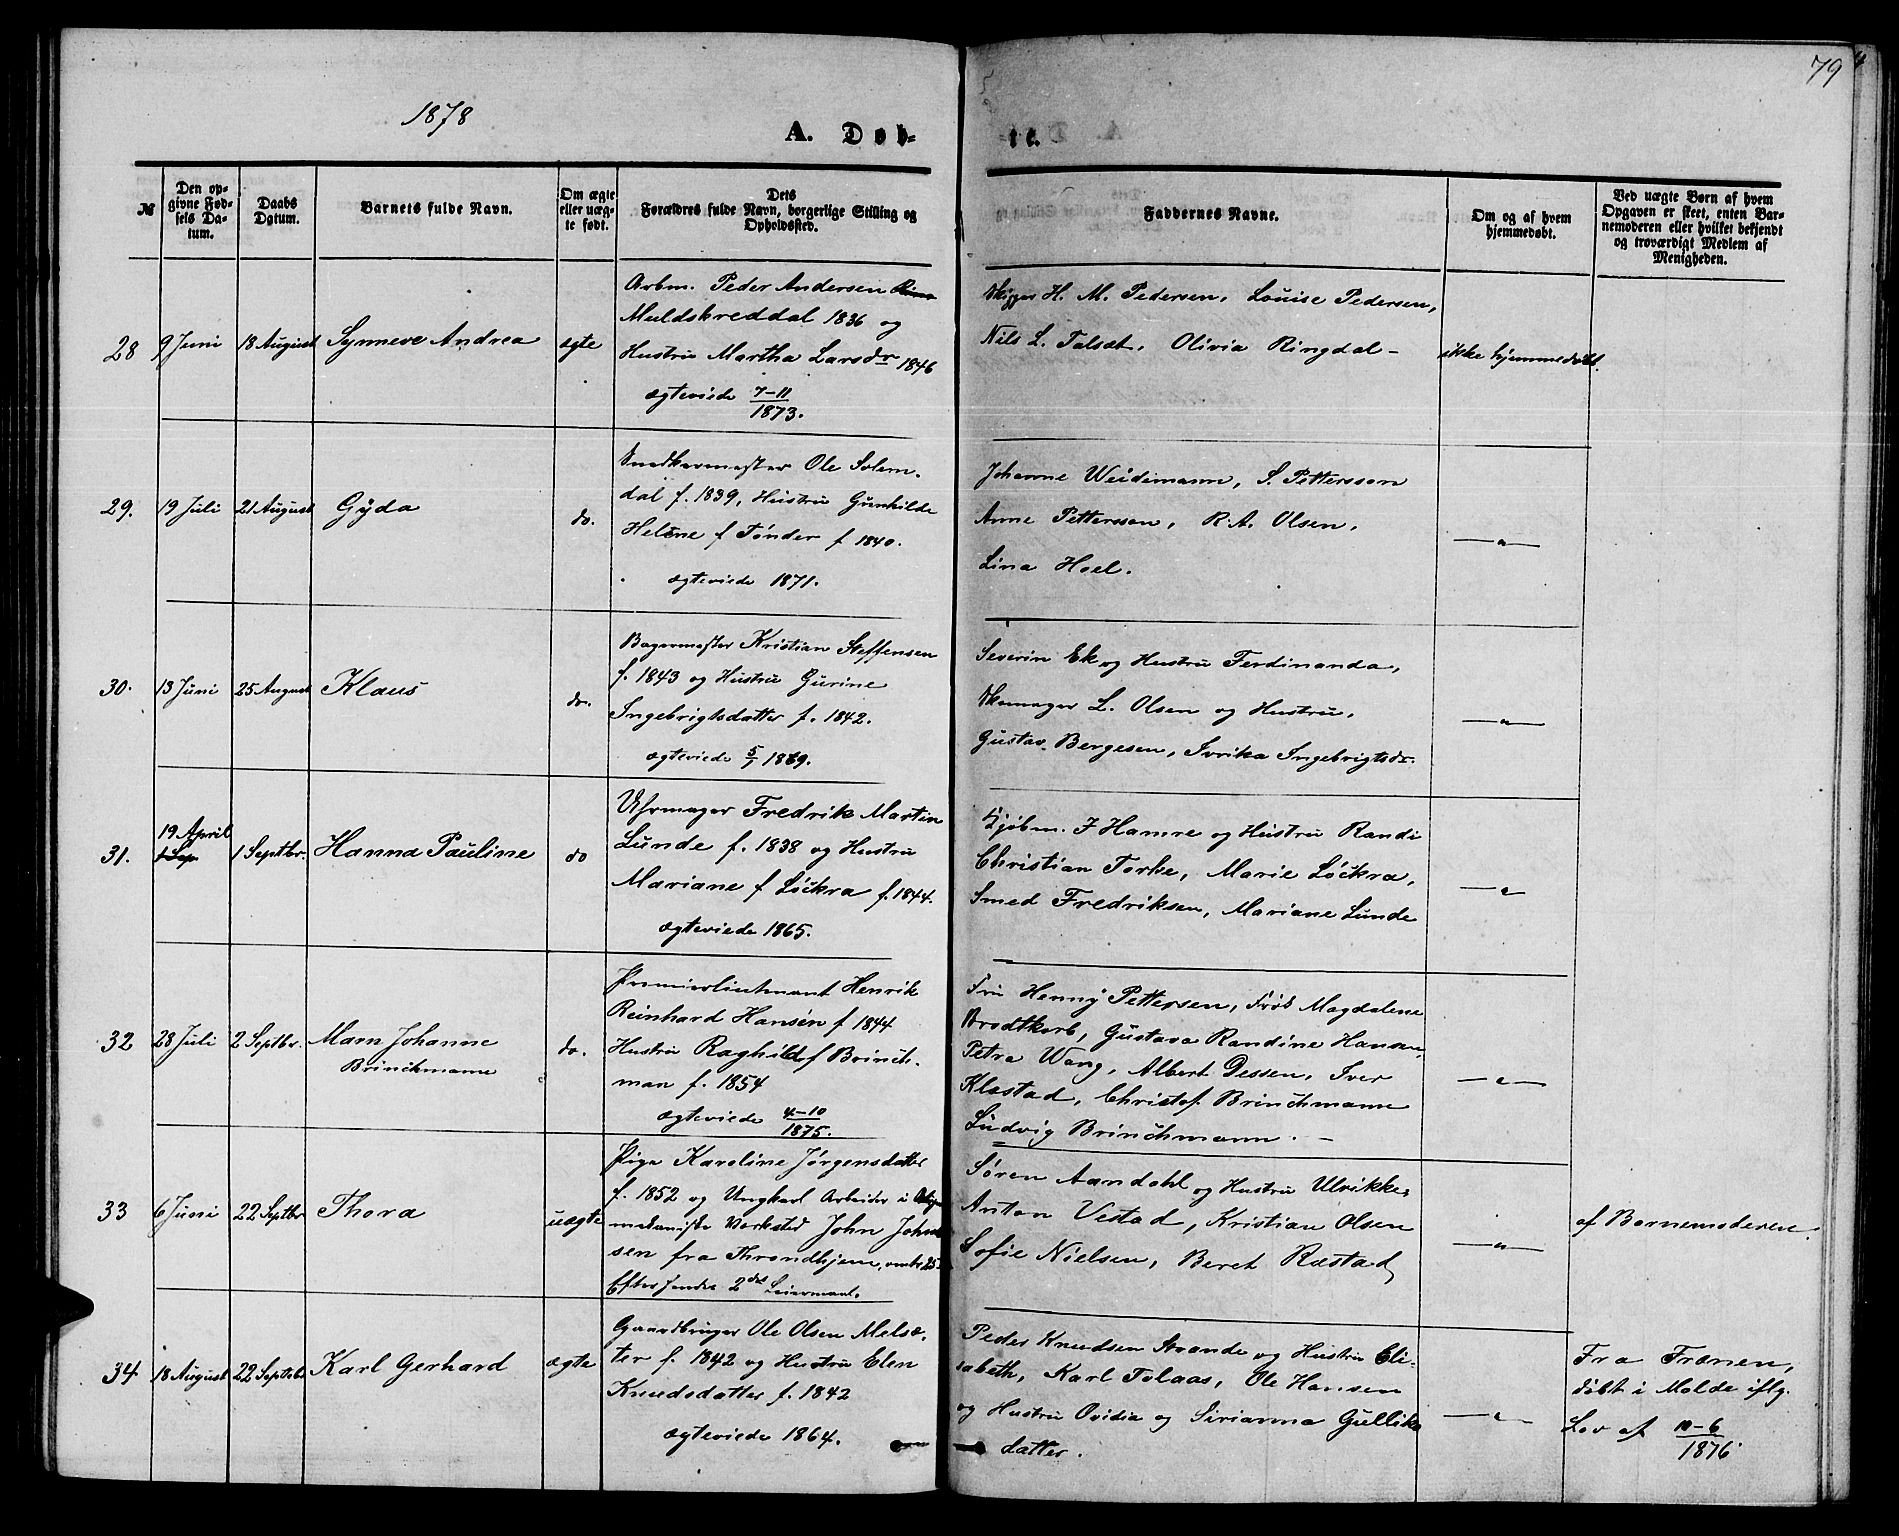 79
1878
A. Døb-
te.
№
Den op-
givne Fød-
sels Da-
tum.
Daabs
Datum.
Barnets fulde Navn.
Om ægte
eller uæg-
te født.
Dets
Forældres fulde Navn, borgerlige Stilling og
Opholdssted.
Faddernes Navne.
Om og af hvem
hjemmedøbt.
Ved uægte Børn af hvem
Opgaven er skeet, enten Bar-
nemoderen eller hvilket bekjendt
og troværdigt Medlem af
Menigheden.
28
9 Juni
18 August
Synneve Andrea
ægte
Arbm. Peder Andersen
Muldskreddal 1836 og
Hustru Martha Larsdr 1846
ægteviede 7-11
1873.
Skipper H. M. Pedersen, Louise Pedersen,
Nils L. Talset, Olivia Ringdal -
ikke hjemmedøbt.
29.
19 Juli
21 August
Gyda
do.
Snedkermester Ole Solem-
dal f. 1839, Hustru Gunhilde
Helene f Tønder f 1840.
ægteviede 1871.
Johanne Weidemann, S. Pettersson
Anne Pettersson, R. A. Olsen,
Lina Hoel.
— " —
30.
13 Juni
25 August
Klaus
do.
Bagermester Kristian Steffensen
f. 1843 og Hustru Gurine
Ingebrigtsdatter f. 1842.
ægteviede 5/7 1869.
Severin Ek og Hustru Ferdinanda,
Skomager L. Olsen og Hustru,
Gustav Bergesen, Ivrika Ingebrigtsdr.
— " —
31.
19 April
1 Sep
1 Septbr.
Hanna Pauline
do
Uhrmager Fredrik Martin
Lunde f. 1838 og Hustru
Mariane f Löckra f. 1844.
ægteviede 1865.
Kjøbm. J Hamre og Hustru Randi
Christian Torke, Marie Löckra,
Smed Fredriksen, Mariane Lunde
— " —
32
28 Juli
2 Septbr.
Marn Johanne
Brinchmann
do.
Premierlieutnant Henrik
Reinhard Hansen f 1844
Hustru Raghild f Brinch-
man f. 1854
ægteviede 4-10
1875.
Fru Henny Pettersen, Frøk Magdalene
Brodtkorb, Gustava Randine Hansen,
Petra Wang, Albert Dessen, Iver
Klæstad, Christof. Brinchmann
Ludvig Brinchmann. -
— " —
33
6 Juni
22 Septbr
Thora
uægte
Pige Karoline Jørgensdatter
f. 1852 og Ungkarl Arbeider i
mekaniske Værksted John John
sen fra Throndhjem, omtr 25
Efter Sendes 2det Leiermaal.
Søren Aandahl og Hustru Ulrikke,
Anton Vestad, Kristian Olsen
Sofie Nielsen, Beret Ræstad,
— " —
af Barnemoderen.
34
18 August
22 Septbr
Karl Gerhard
ægte
Gaardbruger Ole Olsen Melsæ-
ter f. 1842 og Hustru Elen
Knudsdatter f. 1842
ægteviede 1864.
Peder Knudsen Strande og Hustru Eli-
sabeth, Karl Tolaas, Ole Hansen
og Hustru Ovidia og Sirianna Gulliks
datter.
— " —
Fra Frænen,
døbt i Molde iflg.
Lov af 10-6
1876